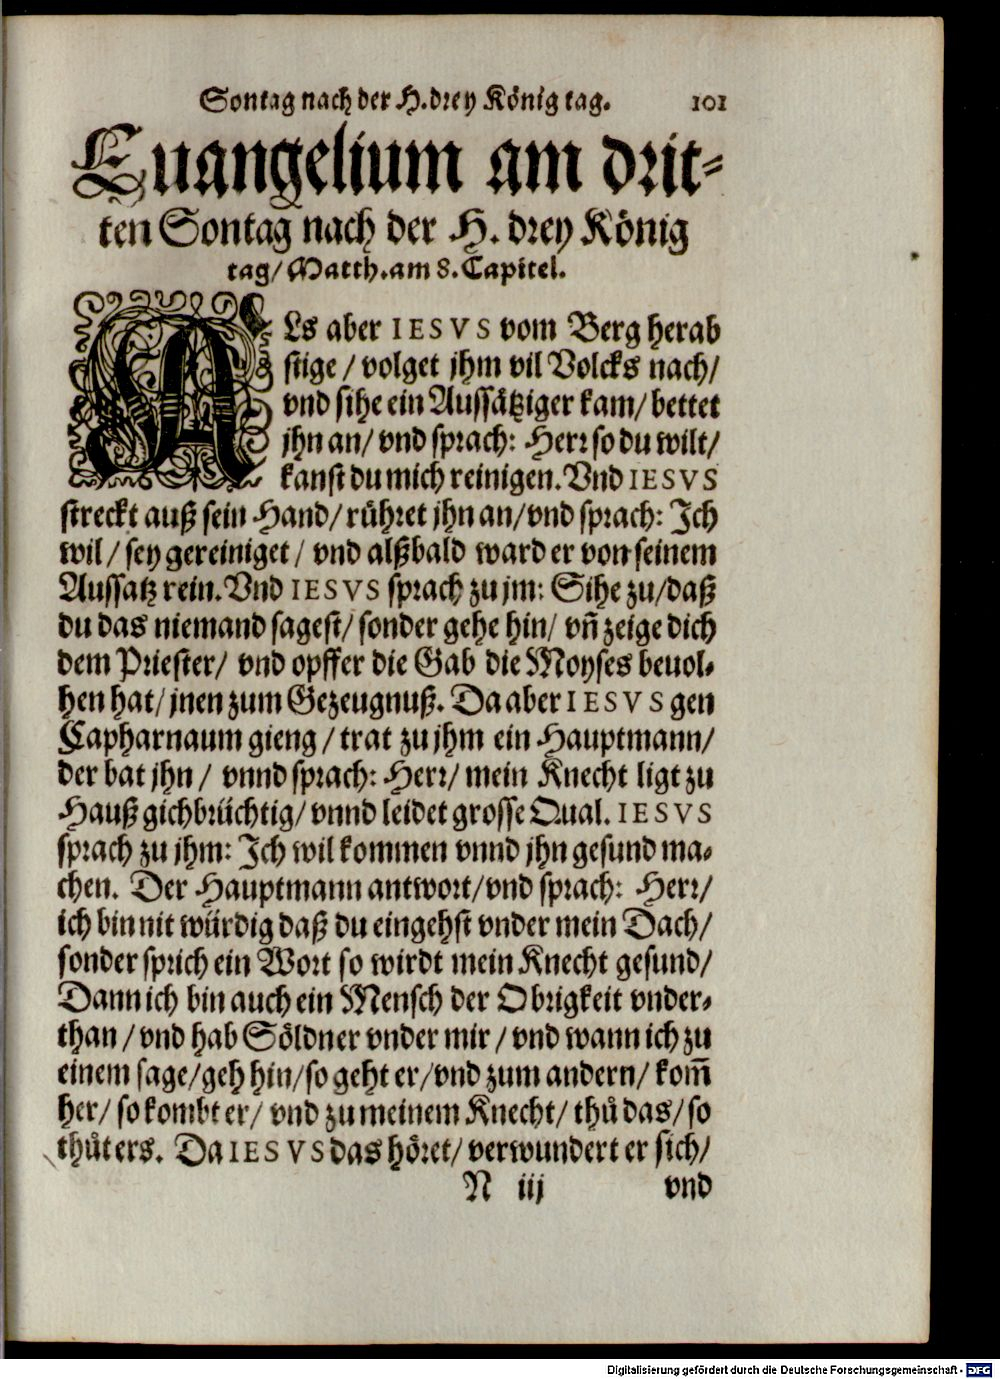 Sontag nach der H. drey König tag. 101
Euangelium am drit-
ten Sontag nach der H. drey König
tag/ Matth. am 8. Capitel.
ALs aber IESVS vom Berg herab
stige / volget jhm vil Volcks nach/
vnd sihe ein Aussätziger kam/ bettet
jhn an/ vnd sprach: Herr so du wilt/
kanst du mich reinigen. Vnd IESVS
streckt auß sein Hand/ rühret jhn an/ vnd sprach: Ich
wil / sey gereiniget / vnd alßbald ward er von seinem
Aussatz rein. Vnd IESVS sprach zu jm: Sihe zu/ daß
du das niemand sagest/ sonder gehe hin/ vñ zeige dich
dem Priester/ vnd opffer die Gab die Moyses beuol-
hen hat/ jnen zum Gezeugnuß. Da aber IESVS gen
Capharnaum gieng / trat zu jhm ein Hauptmann/
der bat jhn / vnnd sprach: Herr/ mein Knecht ligt zu
Hauß gichbrüchtig/ vnnd leidet grosse Qual. IESVS
sprach zu jhm: Ich wil kommen vnnd jhn gesund ma-
chen. Der Hauptmann antwort/ vnd sprach: Herr/
ich bin nit würdig daß du eingehst vnder mein Dach/
sonder sprich ein Wort so wirdt mein Knecht gesund/
Dann ich bin auch ein Mensch der Obrigkeit vnder-
than / vnd hab Söldner vnder mir / vnd wann ich zu
einem sage/ geh hin/ so geht er/ vnd zum andern/ kom̃
her/ so kombt er/ vnd zu meinem Knecht/ thů das/ so
thůt ers. Da IESVS das höret/ verwundert er sich/
N iij vnd
Digitalisierung gefördert durch die Deutsche Forschungsgemeinschaft - DFG